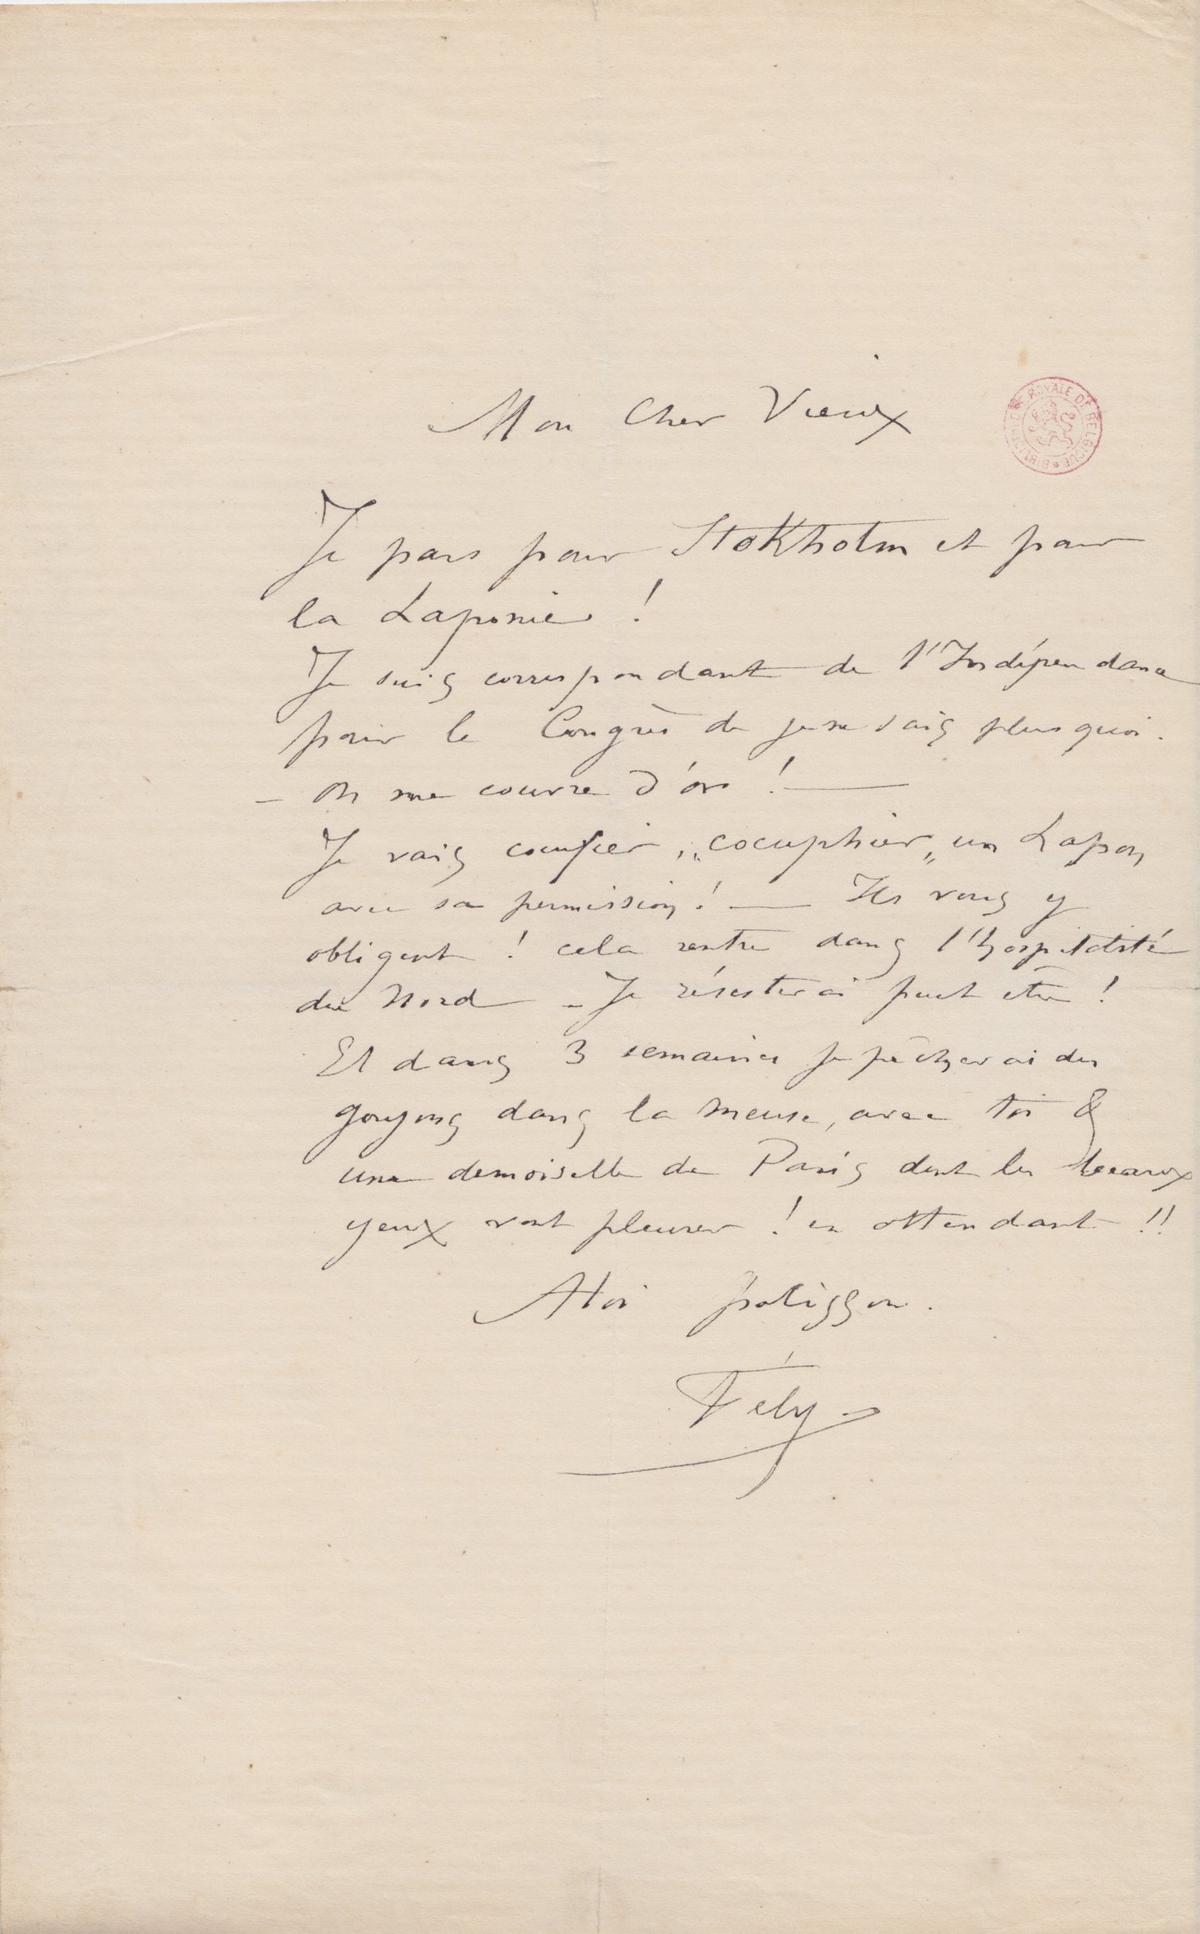 Mon Cher Vieux
BIBLIOTHÈQUE ROYALE DE BELGIQUE
Je pars pour Stokholm et pour
la Laponie !
Je suis correspondant de l'Indépendance
pour le Congrès de je ne sais plus quoi.
– On me couvre d'or ! —
Je vais cocufier, „cocuphier„ un Lapon,
avec sa permission ! — Ils vous y
obligent ! cela rentre dans l'hospitalité
du Nord – Je résisterai peut etre !
Et dans 3 semaines je pêcherai des
goujons dans la Meuse, avec toi &
une demoiselle de Paris dont les beaux
yeux vont pleurer ! en attendant !!
A toi polisson.
Fély